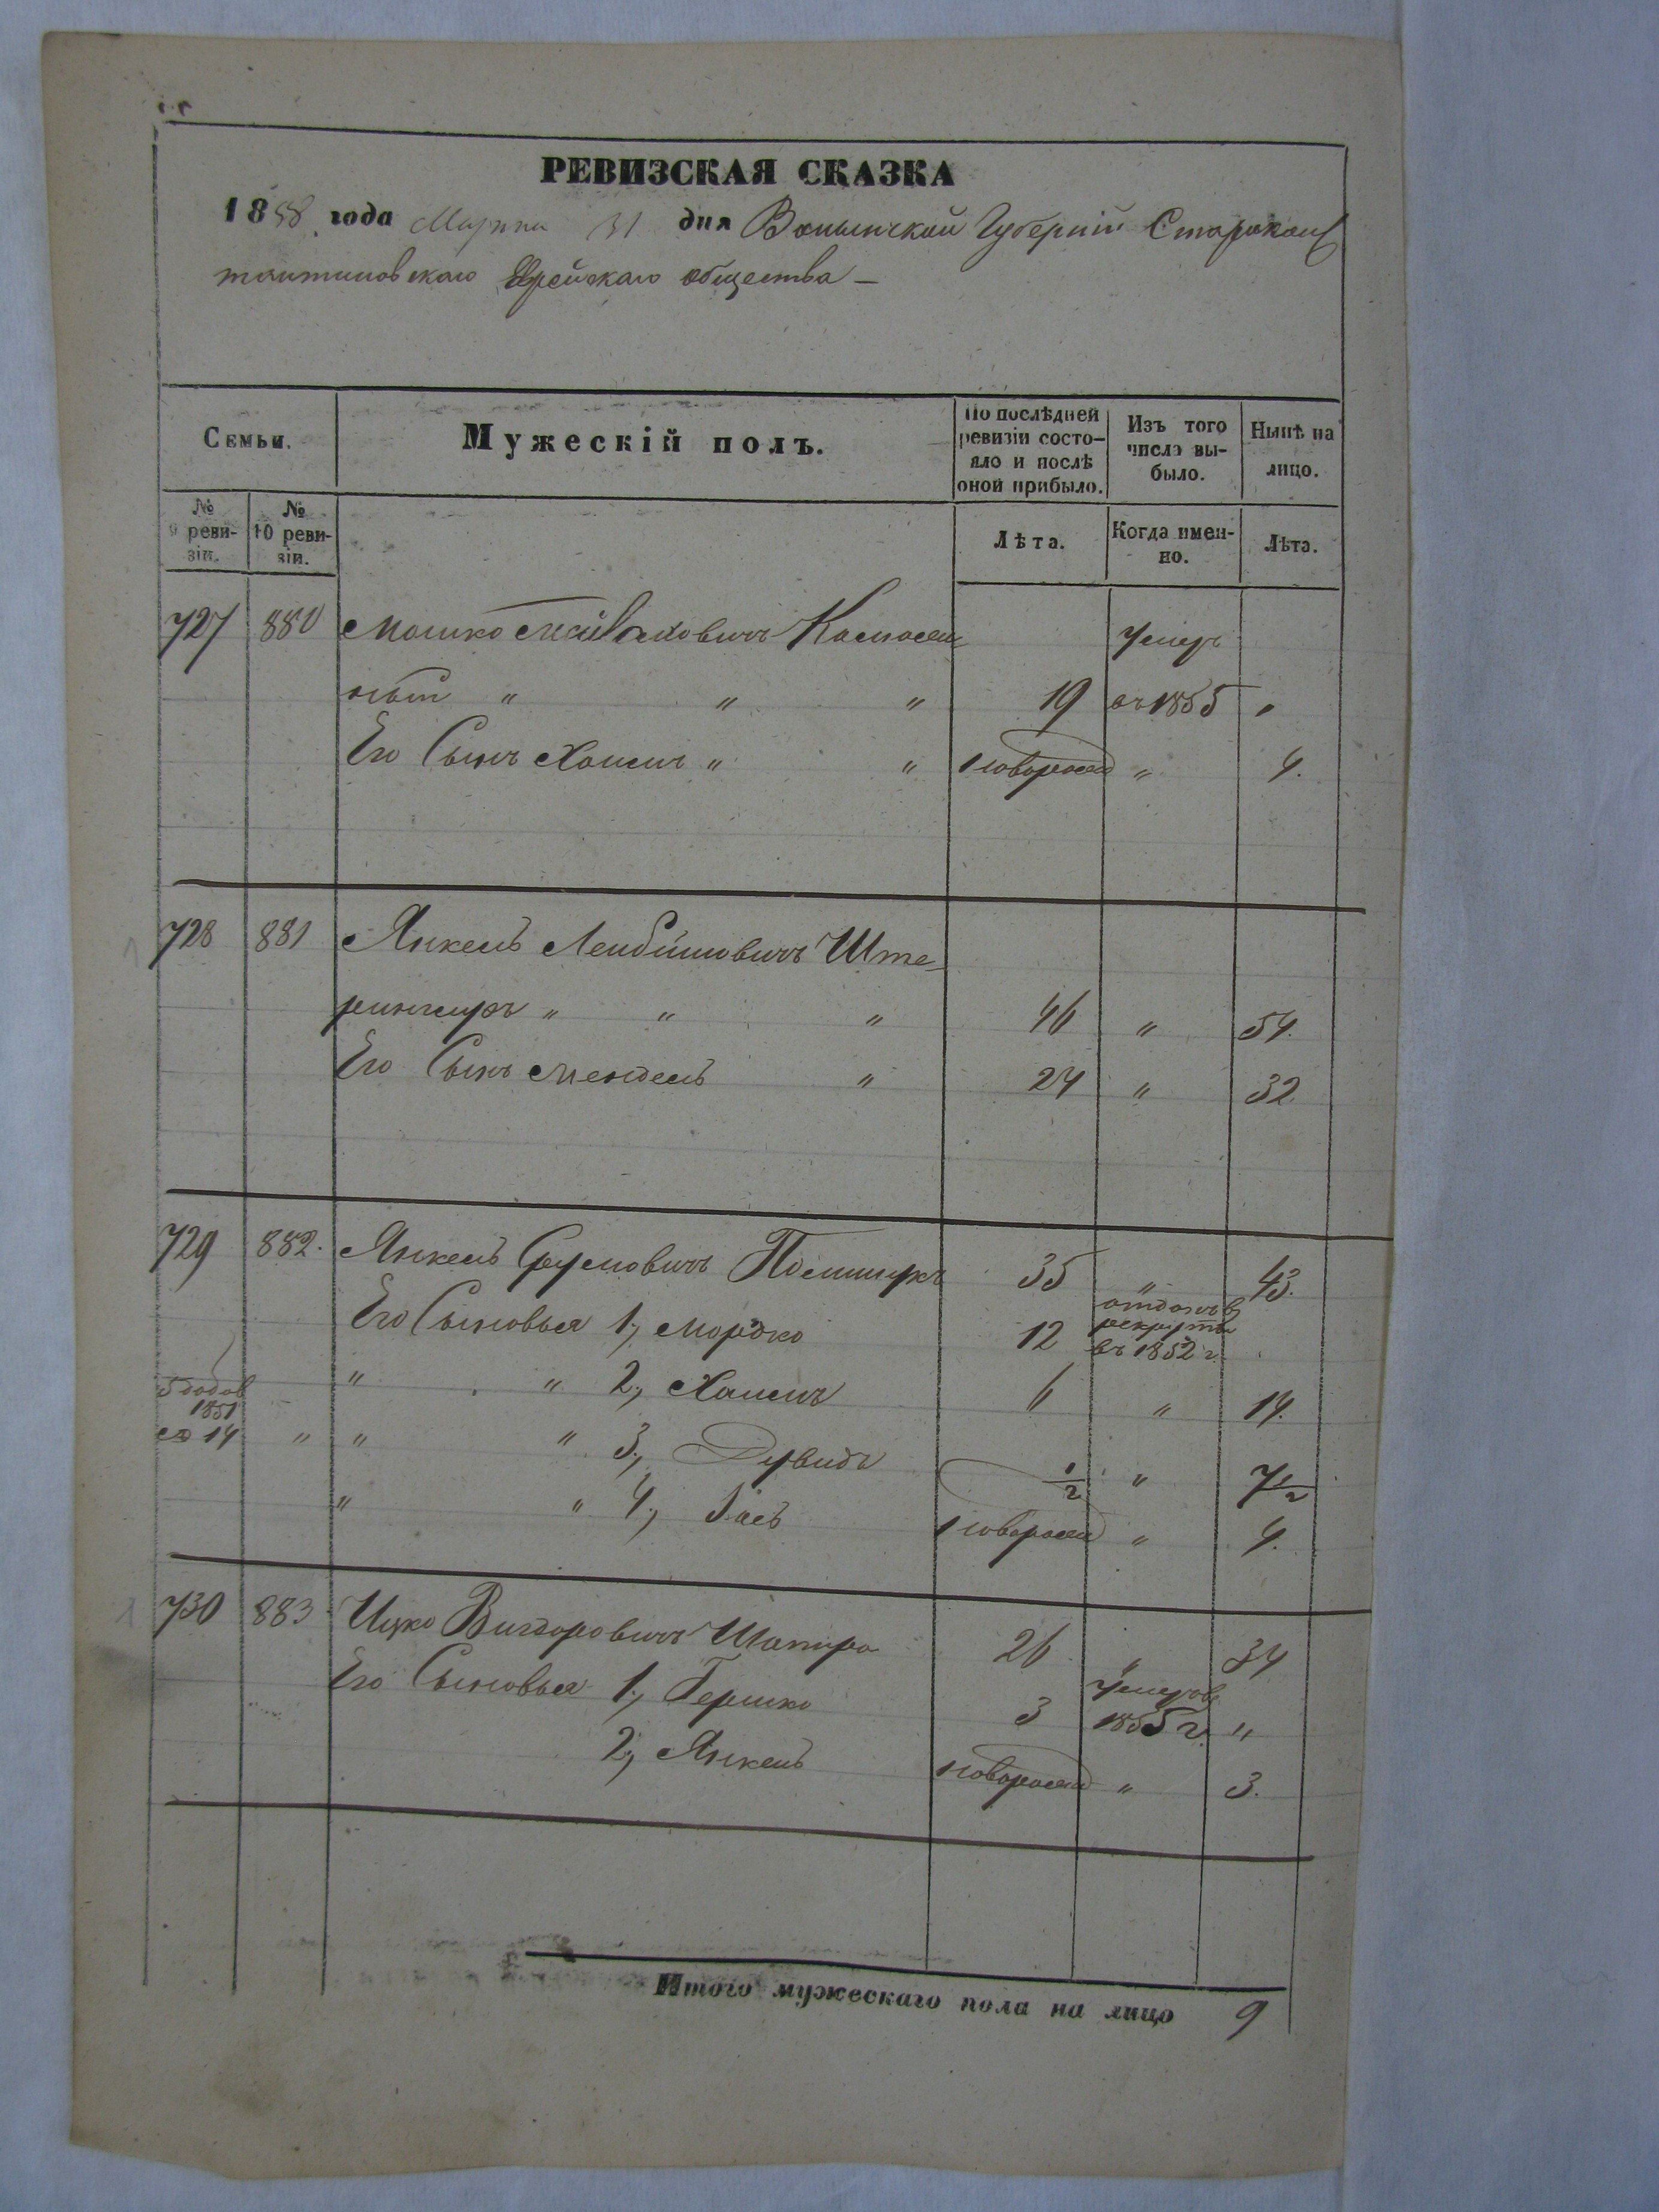 РЕВИЗСКАЯ СКАЗКА
1858 года Марта 31 дня Волынской Губерніи Старокон
стантиновскаго Еврейскаго общества —
Семьи.
Мужескій полъ.
По послѣдней ревизіи состо-
яло и послѣ
оной прибыло.
Изъ того
числа вы-
было.
Нынѣ на
лицо.
№
9 реви-
зіи.
№
10 реви-
зіи.
Лѣта.
Когда имен-
но.
Лѣта.
727 880 Мошко
умеръ
" " " 19 въ 1855 "
Его Сынъ Хаимъ " " новорожд " 4.
728 881 Янкель Лейбишовичъ Ште
" " " 46 " 54.
Его Сынъ Мендель " 24 " 32
729 882. Янкель Срулевичъ 35 " 43.
Его Сыновья 1, Мордко 12 отданъ в рекруты въ 1852 г.
" " 2, Хаимъ 6 " 14.
1851
14 " " " 3, Дувидъ 1/2 " 7 1/2
" " 4, новорожд " 4.
730 883 Ицко Вигдоровичъ Шапиро 26 " 34
Его Сыновья 1, Гершко 3 умеръ в 1855 г. "
2, Янкель новорожд " 3.
Итого мужескаго пола на лицо 9